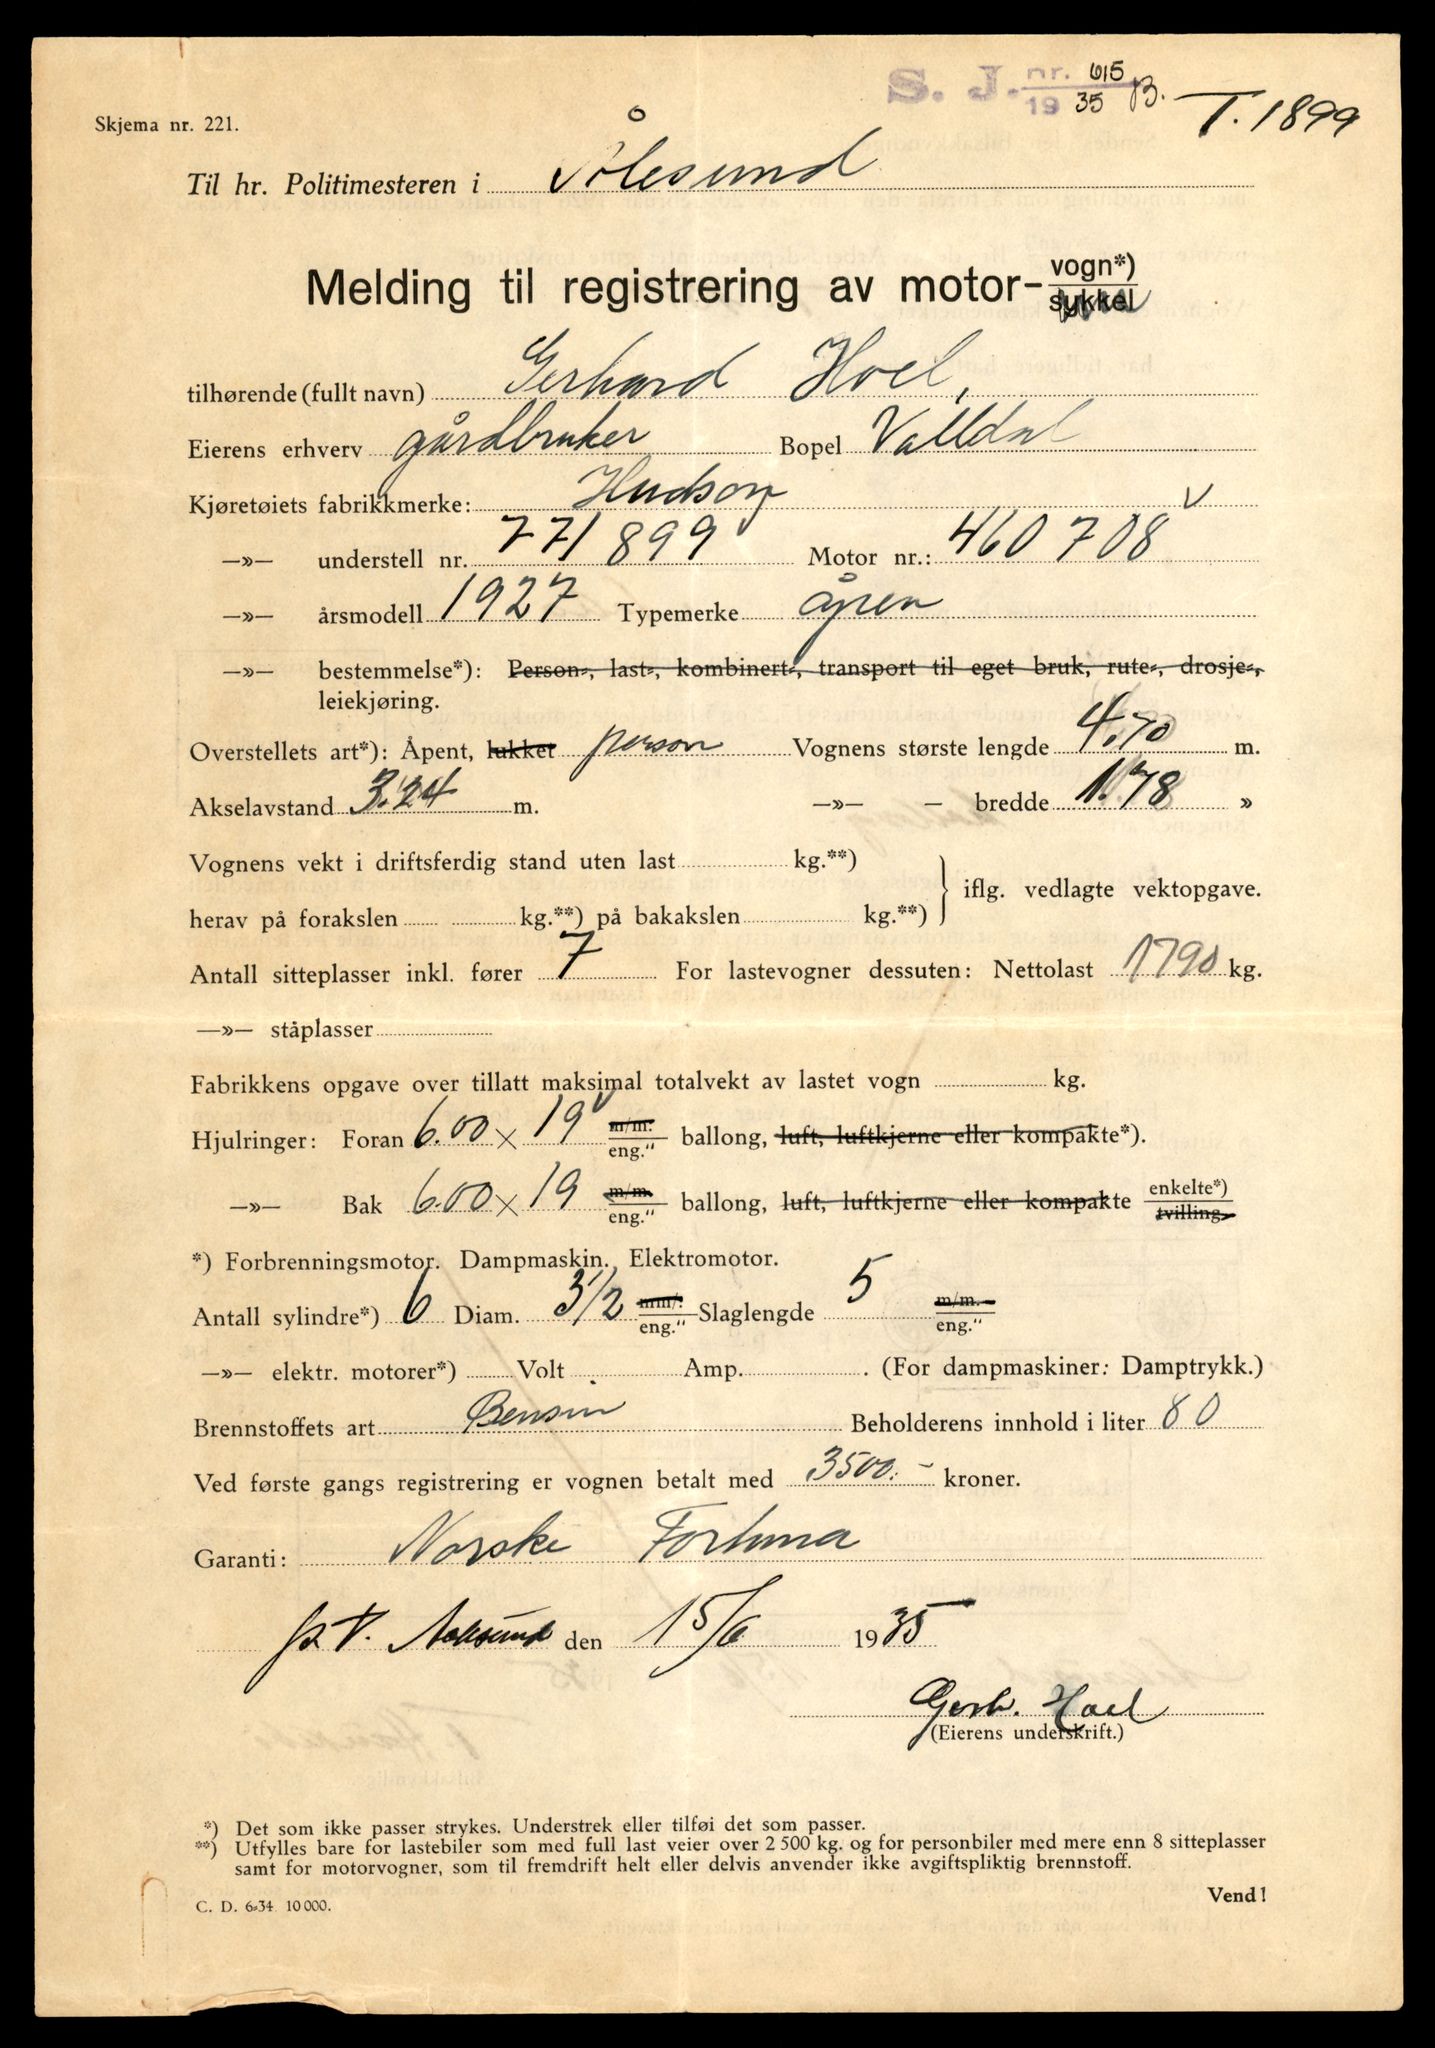 S. J. nr. 615 / 1935 B. T. 1899
Skjema nr. 221.
Til hr. Politimesteren i Ålesund
Melding til registrering av motor- vogn*) / sykkel
tilhørende (fullt navn) Gerhard Hoel,
Eierens erhverv gårdbruker Bopel Valldal
Kjøretøiets fabrikkmerke: Hudson v
—»— understell nr. 771899 Motor nr.: 460708
—»— årsmodell 1927 Typemerke åpen
—»— bestemmelse*): Person-, last-, kombinert-, transport til eget bruk, rute-, drosje-,
leiekjøring.
Overstellets art*): Åpent, lukket person Vognens største lengde 4.70 m.
Akselavstand 3.24 m. —»— — bredde 1.78 »
Vognens vekt i driftsferdig stand uten last kg.**)
herav på forakslen kg.**) på bakakslen kg.**) } iflg. vedlagte vektopgave.
Antall sitteplasser inkl. fører 7 For lastevogner dessuten: Nettolast 1790 kg.
—»— ståplasser
Fabrikkens opgave over tillatt maksimal totalvekt av lastet vogn kg.
Hjulringer: Foran 6.00 × 19 m/m. / eng." ballong, luft, luftkjerne eller kompakte*).
—»— Bak 6.00 × 19 m/m. / eng." ballong, luft, luftkjerne eller kompakte enkelte*) / tvilling.
*) Forbrenningsmotor. Dampmaskin. Elektromotor.
Antall sylindre*) 6 Diam. 3 1/2 mm/. / eng." Slaglengde 5 m/m. / eng."
—»— elektr. motorer*) Volt Amp. . (For dampmaskiner: Damptrykk.)
Brennstoffets art Bensin Beholderens innhold i liter 80
Ved første gangs registrering er vognen betalt med 3500.- kroner.
Garanti: Norske Fortuna
p.t. Aalesund den 15/6 1935
Gerh. Hoel
(Eierens underskrift.)
*) Det som ikke passer strykes. Understrek eller tilføi det som passer.
**) Utfylles bare for lastebiler som med full last veier over 2 500 kg. og for personbiler med mere enn 8 sitteplasser
samt for motorvogner, som til fremdrift helt eller delvis anvender ikke avgiftspliktig brennstoff.
Vend!
C. D. 6-34 10 000.